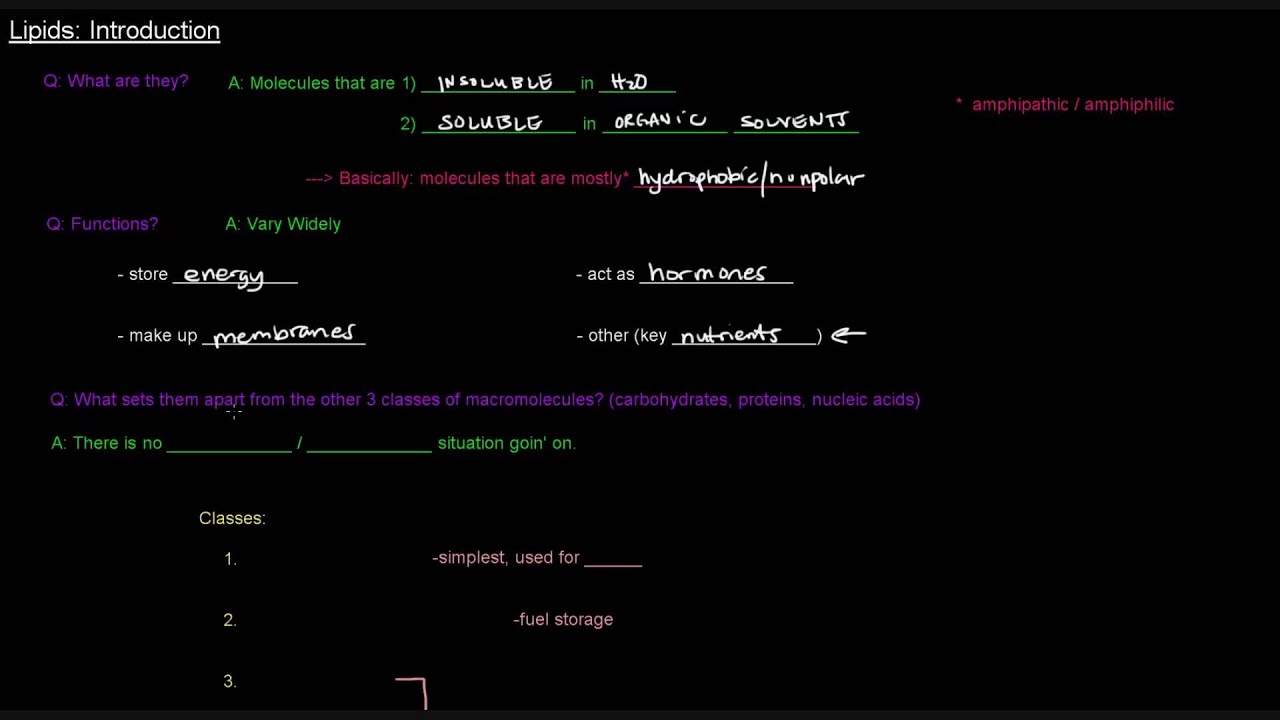 Lipids: Introduction
Q: What are they? A: Molecules that are 1) INSOLUBLE in H2O
* amphipathic / amphiphilic
2) SOLUBLE in ORGANIC SOLVENTS
---> Basically: molecules that are mostly* hydrophobic/nonpolar
Q: Functions? A: Vary Widely
- store energy - act as hormones
- make up membranes - other (key nutrients) ←
Q: What sets them apart from the other 3 classes of macromolecules? (carbohydrates, proteins, nucleic acids)
A: There is no ____________ / ____________ situation goin' on.
Classes:
1. -simplest, used for ______
2. -fuel storage
3.